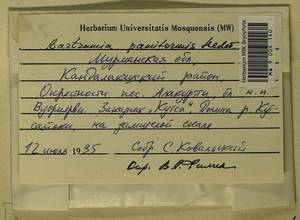 Herbarium Universitatis Mosquensis (MW)
Bartramia pomiformis Hedw.
Мурманская обл,
Кандалакшский район,
Окрестности пос. Алакуртти, б. н.п.
Вуориярви. Заказник "Кутса". Долина р. Кут-
сайоки, на замшелой скале
12 июля 1995 Собр. С. Ковальский
Опр. В.Р. Филин
Herbarium MW, Bryophyta
MW 9 004 140